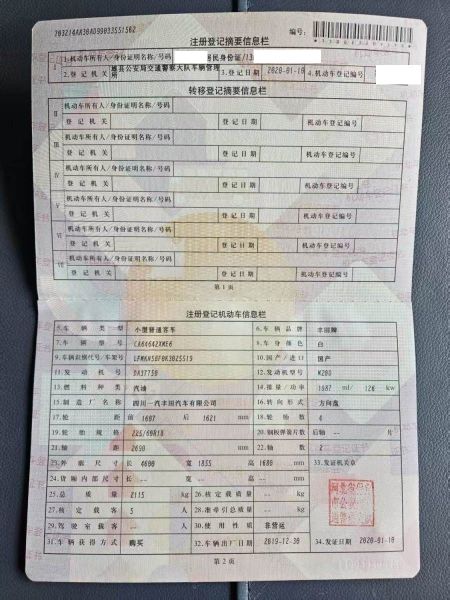 注册登记摘要信息栏
编号:
I
1.机动车所有人/身份证明名称/号码
居民身份证/13
2.登记机关
县公安局交通警察大队车辆管理所
3.登记日期
2020-01-10
4.机动车登记编号
转移登记摘要信息栏
II
机动车所有人/身份证明名称/号码
登记机关
登记日期
机动车登记编号
III
机动车所有人/身份证明名称/号码
登记机关
登记日期
机动车登记编号
IV
机动车所有人/身份证明名称/号码
登记机关
登记日期
机动车登记编号
V
机动车所有人/身份证明名称/号码
登记机关
登记日期
机动车登记编号
VI
机动车所有人/身份证明名称/号码
登记机关
登记日期
机动车登记编号
VII
机动车所有人/身份证明名称/号码
登记机关
登记日期
机动车登记编号
第1页
注册登记机动车信息栏
5.车辆类型 小型普通客车 6.车辆品牌 丰田牌
7.车辆型号 CA64642XME6 8.车身颜色 白
9.车辆识别代号/车架号 10.国产/进口 国产
11.发动机号 12.发动机型号 M20D
13.燃料种类 汽油 14.排量/功率 1987 ml/ 126 kw
15.制造厂名称 四川一汽丰田汽车有限公司 16.转向形式 方向盘
17.轮距 前 1607 后 1621 mm 18.轮胎数 4
19.轮胎规格 225/60R18 20.钢板弹簧片数 后轴 -- 片
21.轴距 2690 mm 22.轴数 2
23.外廓尺寸 长 4600 宽 1855 高 1680 mm 33.发证机关章
24.货厢内部尺寸 长 -- 宽 -- 高 -- mm
25.总质量 2115 kg 26.核定载质量 -- kg
27.核定载客 5 人 28.准牵引总质量 -- kg
29.驾驶室载客 -- 人 30.使用性质 非营运
31.车辆获得方式 购买 32.车辆出厂日期 2019-12-30 34.发证日期 2020-01-10
第2页